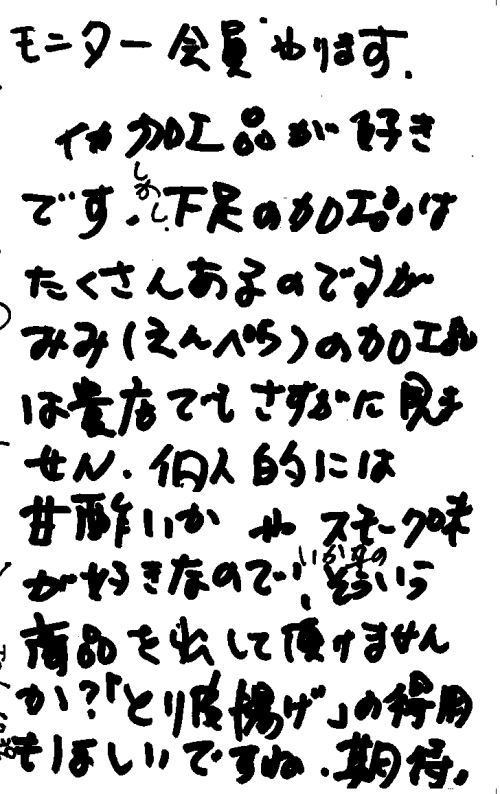 モニター会員やります。
イカ加工品が好き
です。しかし、下足の加工品は
たくさんあるのですが
みみ(えんぺら)の加工品
は貴店でもさすがに見ま
せん。個人的には
甘酢いか や スモーク味
が好きなので、いかみみの そういう
商品を出して頂けません
か?「とり皮揚げ」の得用
もほしいですね。期待。